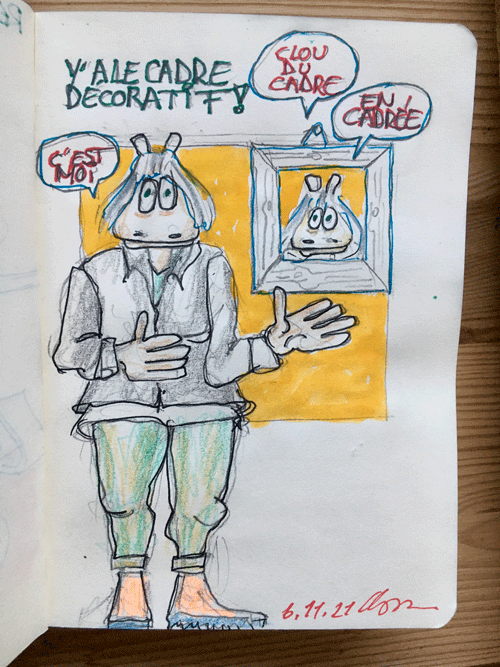 Y'A LE CADRE
DÉCORATIF!
CLOU
DU
CADRE
EN
CADRÉE
C'EST
MOI
6.11.21